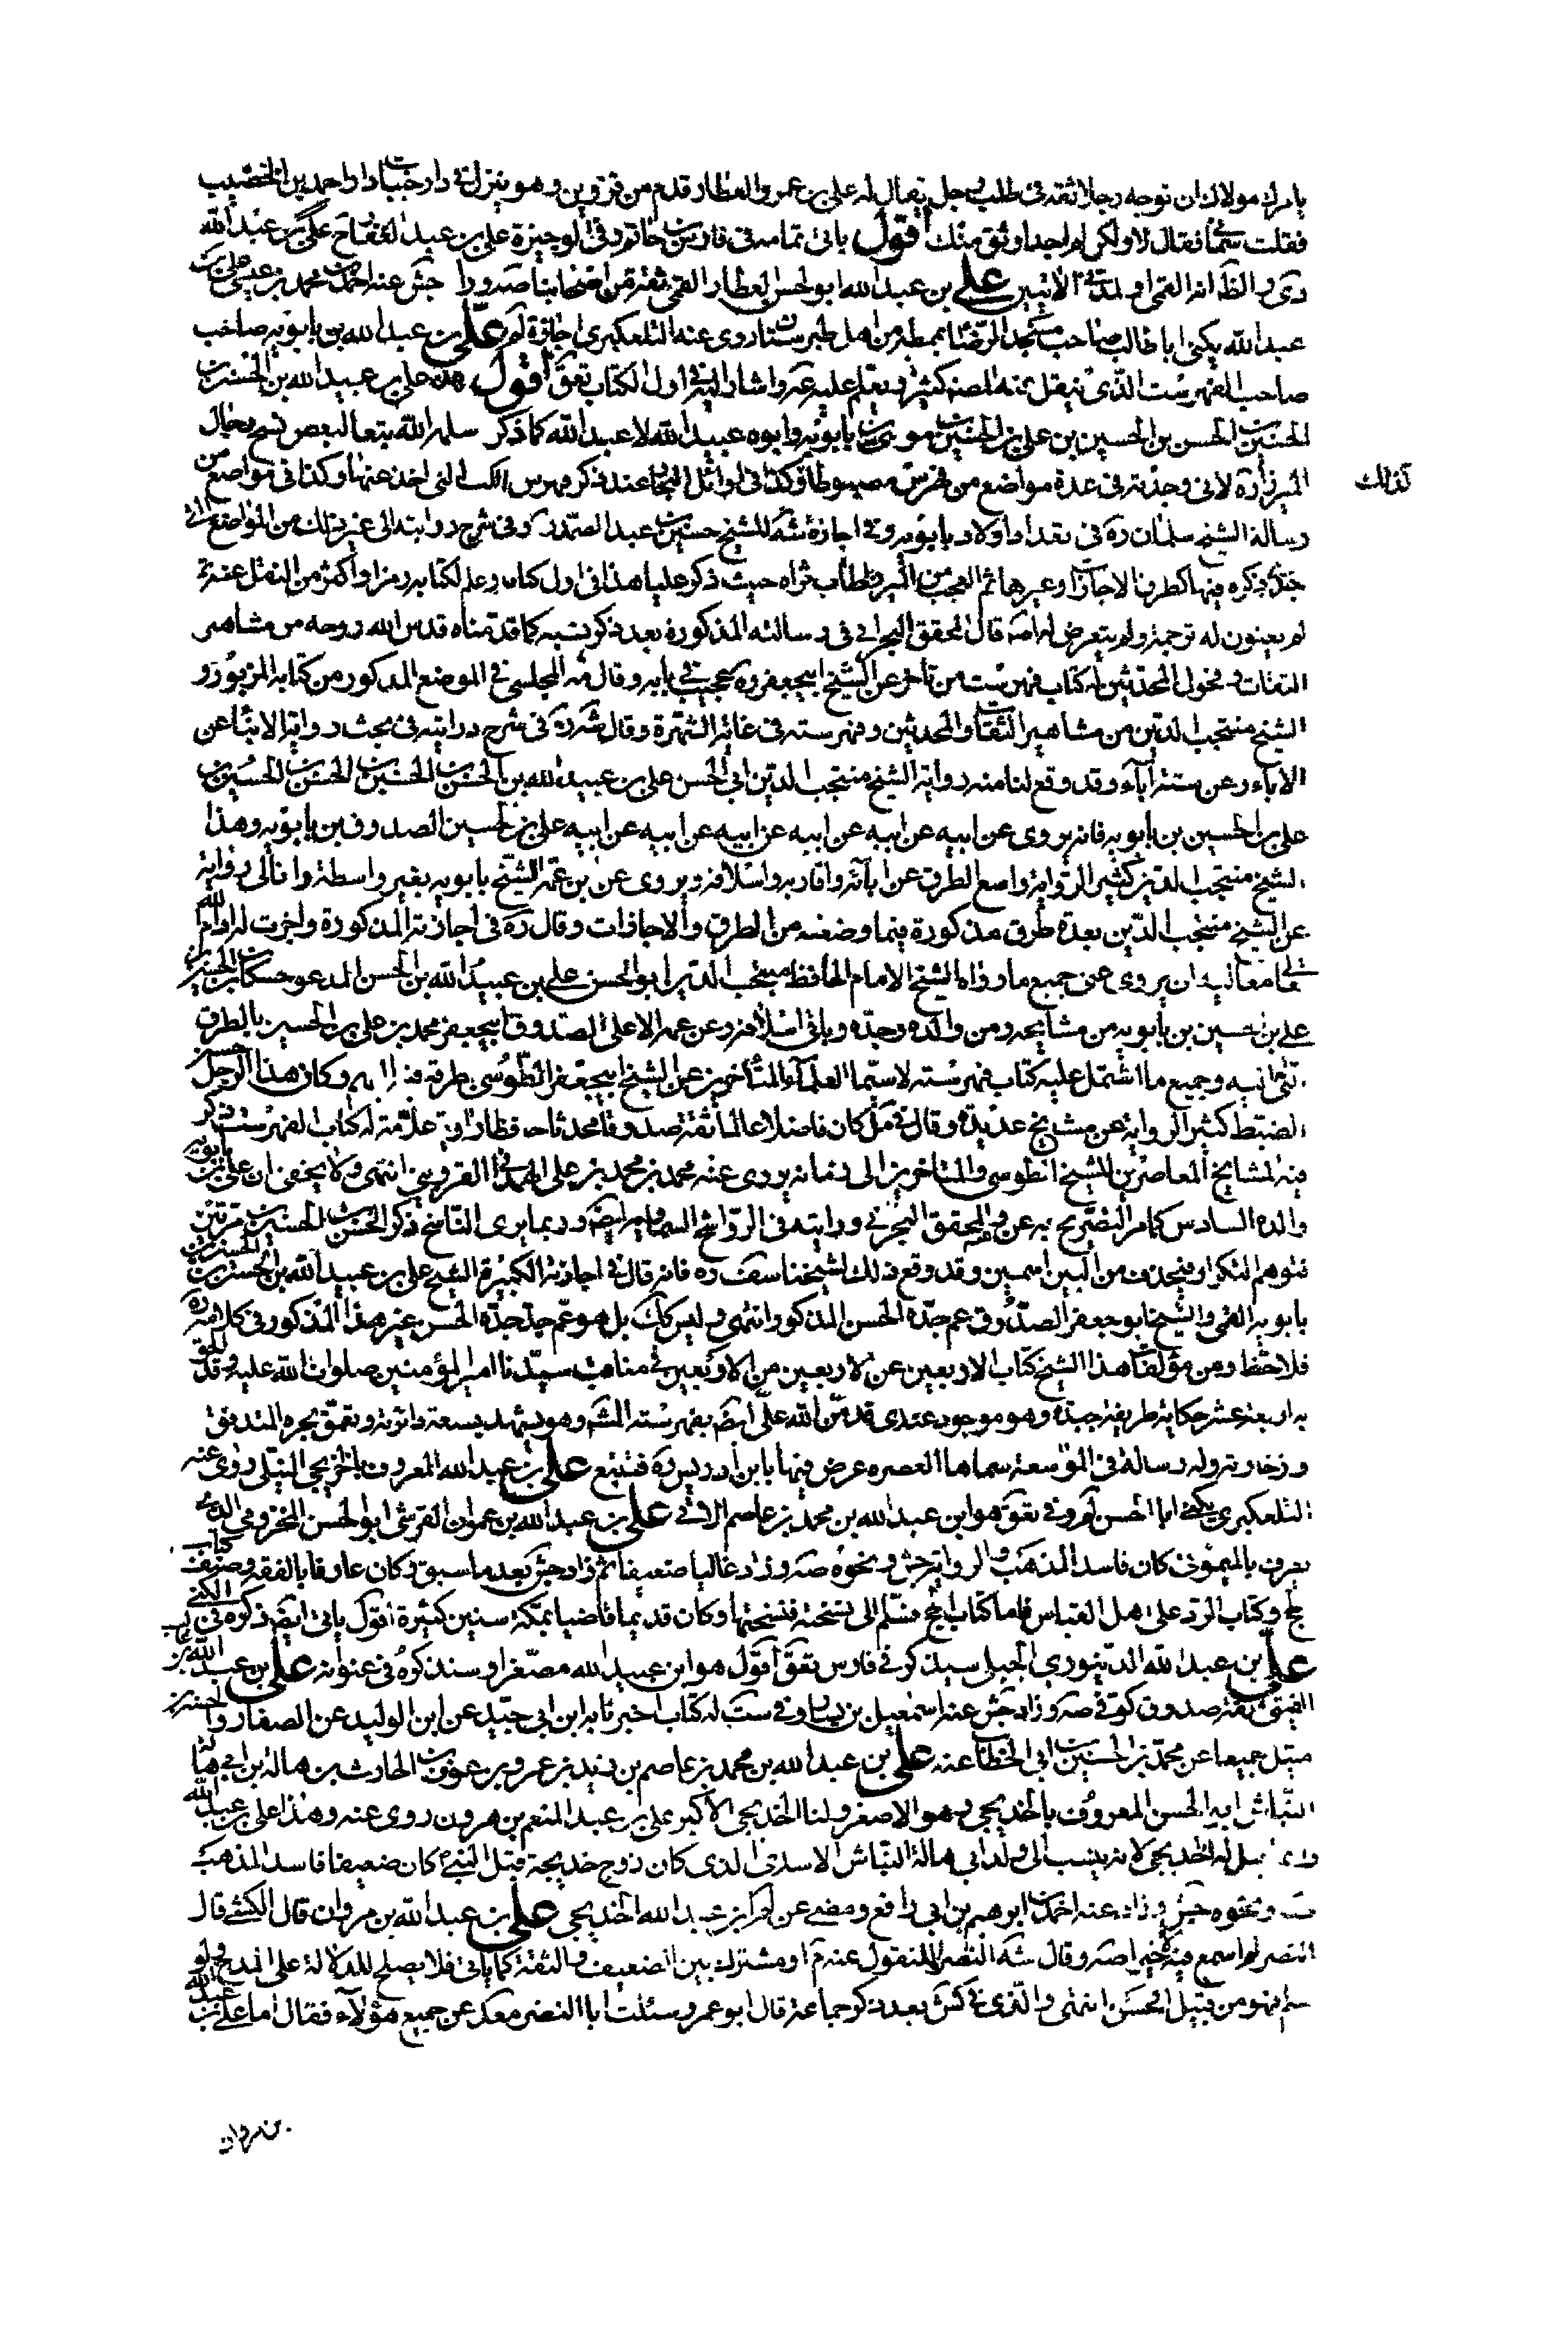 يامرك مولاك ان توجه رجلا ثقة فى طلب رجل يقال له على بن عمرو العطار قدم من قزوين وهو ينزل فى دار جنبات دار احمد بن الخضيب
فقلت سمانى فقال لا ولكن لم اجد اوثق منك اقول ياتى تمامه فى فارس بن حاتم وفى الوجيزة على بن عبد الغفار على بن عبد الله
والظ انه القمى او لمدحه الاتيين على بن عبد الله ابو الحسن العطار القمى ثقة من اصحابنا صه وزاد جش عنه احمد بن محمد بن عيسى على بن
عبد الله يكنى ابا طالب صاحب مسجد الرضا بمطير من اهل طبرستان روى عنه التلعكبرى اجازة لم على بن عبيد الله بن بابويه صاحب
صاحب الفهرست الذى ينقل عنه المصنف كثيرا يعلم عليه عه واشار اليه فى اول الكتاب تعق اقول هذا على بن عبيد الله بن الحسن بن
الحسين بن الحسن بن الحسين بن على بن الحسين بن موسى بن بابويه وابوه عبيد الله لا عبد الله كما ذكر سلمه الله تبعا لبعض نسخ رجال
الميرزا ره لانى وجدته فى عدة مواضع من فهرسته مضبوطا وكذا فى اوائل البحار عند ذكر فهرس الكتب التى اخذ عنها وكذا فى مواضع من
رسالة الشيخ سلمان ره فى تعداد اولاد بابويه وفى اجازة شه للشيخ حسين بن عبد الصمد ره وفى شرح درايته الى غير ذلك من المواضع التى
جرى ذكره فيها كطرق الاجازات وغيرها ثم العجب من الميرزا طاب ثراه حيث ذكر عليا هذا فى اول كتابه وعلم لكتابه رمزا واكثر من النقل عنه ثم
لم يعنون له ترجمة ولم يتعرض له اصه قال المحقق البحرانى فى رسالته المذكورة بعد ذكر نسبه كما قدمناه قدس الله روحه من مشاهير
الثقات وفحول المحدثين له كتاب فهرست من تاخر عن الشيخ ابى جعفر ره عجيب فى بابه وقال مه المجلسى فى الموضع المذكور من كتابه المزبور و
الشيخ منتجب الدين من مشاهير الثقات والمحدثين وفهرسته فى غاية الشهرة وقال شه ره فى شرح درايته فى بحث رواية الابناء عن
الآباء وعن ستة آباء وقد وقع لنا منه رواية الشيخ منتجب الدين ابى الحسن على بن عبيد الله بن الحسن بن الحسين بن الحسن بن الحسين بن
على بن الحسين بن بابويه فانه يروى عن ابيه عن ابيه عن ابيه عن ابيه عن ابيه عن ابيه على بن الحسين الصدوق بن بابويه وهذا
الشيخ منتجب الدين كثير الرواية واسع الطرق عن آبائه واقاربه واسلافه ويروى عن ابن عمه الشيخ بابويه بغير واسطة وانا لى رواية
عن الشيخ منتجب الدين بعدة طرق مذكورة فيما وضعته من الطرق والاجازات وقال ره فى اجازته المذكورة واجزت له ادام الله
تعالى معاليه ان يروى عنى جميع ما رواه الشيخ الامام الحافظ منتجب الدين ابو الحسن على بن عبيد الله بن الحسن المدعو حسكا بن الحسين بن
على بن حسين بن بابويه من مشايخه ومن والده وجده وباقى اسلافه وعن عمه الاعلى الصدوق ابى جعفر محمد بن على بن الحسين بالطرق
التى اليه وجميع ما اشتمل عليه كتاب فهرسته لاسيما العلماء المتأخرين عن الشيخ ابى جعفر الطوسى وكان هذا الرجل حسن
الضبط كثير الرواية عن مشايخ عديدة وقال فى مل كان فاضلا عالما ثقة صدوقا محدثا حافظا راوية علامة له كتاب الفهرست ذكر
فيه المشايخ المعاصرين للشيخ الطوسى والمتاخرين الى زمانه يروى عنه محمد بن محمد بن على الهمدانى القزوينى انتهى ولا يخفى ان على بن بابويه
والده السادس كما مر التصريح به عن المحقق البحرانى ودرايته فى الرواشح السماوية ايضا وربما يرى الناسخ ذكر الحسن بن الحسين مرتين
فتوهم التكرار فيحذف من البين اسمين وقد وقع ذلك لشيخنا سف ره فانه قال فى اجازته الكبيرة الشيخ على بن عبيد الله بن الحسن بن الحسين بن
بابويه القمى والشيخ ابو جعفر الصدوق عم جده الحسن المذكور انتهى وليس كك بل هو عم جد جده الحسن غير هذا المذكور فى كلامه ره
فلاحظ ومن مؤلفات هذا الشيخ كتاب الاربعين عن الاربعين من الاربعين فى مناقب سيدنا امير المؤمنين صلوات الله عليه وقد الحق
به اربعة عشر حكاية طريفة جيدة وهو موجود عندى قد من الله على ايضا بفهرسته المشه وهو يشهد بسعة دائرته وتعمق بحره التدقيق
وزخاوته وله رسالة فى المواسعة سماها العصره عرض فيها بابن ادريس ره فتتبع على بن عبد الله المعروف بالخزيجى النيلى روى عنه
التلعكبرى يكنى ابا الحسن لم وفى تعق هو ابن عبد الله بن محمد بن عاصم الاتى على بن عبد الله بن عمران القرشى ابو الحسن المخزومى الذى
يعرف بالميمونى كان فاسد المذهب والرواية جش ونحوه صه وزاد غاليا ضعيفا ثم زاد جش بعد ما سبق وكان عارفا بالفقه وصنف كتاب
الحج وكتاب الرد على اهل القياس فاما كتاب الحج فسلم الى نسخته فنسختها وكان قديما قاضيا بمكة سنين كثيرة اقول ياتى ايضا ذكره فى الكنى
على بن عبد الله الدينورى الجبلى سيذكر فى فارس تعق اقول هو ابن عبيد الله مصغرا وسنذكره فى عنوانه على بن عبد الله بن
ثقة صدوق كوفى صه وزاد جش عنه اسمعيل بن يسار وفى ست له كتاب اخبرنا به ابن ابى جيد عن ابن الوليد عن الصفار والحسن بن
متيل جميعا عن محمد بن الحسين بن ابى الخطاب عنه على بن عبد الله بن محمد بن عاصم بن زيد بن عمرو بن عوف بن الحارث بن هالة بن ابى هالة
النباش ابو الحسن المعروف بالخديجى وهو الاصغر ولنا الخديجى الاكبر على بن عبد المنعم بن هرون روى عنه وهذا على بن عبد الله
وانما قيل له الخديجى لانه ينسب الى ولد ابى هالة النباش الاسدى الذى كان زوج خديجة قبل النبى كان ضعيفا فاسد المذهب
ونحوه جش وزاد عنه احمد بن ابرهيم بن ابى رافع ومضى عن لم ابن عبد الله الخديجى على بن عبد الله بن مروان قال الكشى قال
النضر لم اسمع فيه الا خيرا صه وقال شه النضر المنقول عنه م ا ومشترك بين الضعيف والثقة كما ياتى فلا يصلح للدلالة على المدح ولو
سلم فهو من قبيل الحسن انتهى والذى فى كش بعد ذكر جماعة قال ابو عمرو سئلت ابا النضر معكم عن جميع هؤلاء فقال اما على بن عبد الله
بن مروان
كذلك